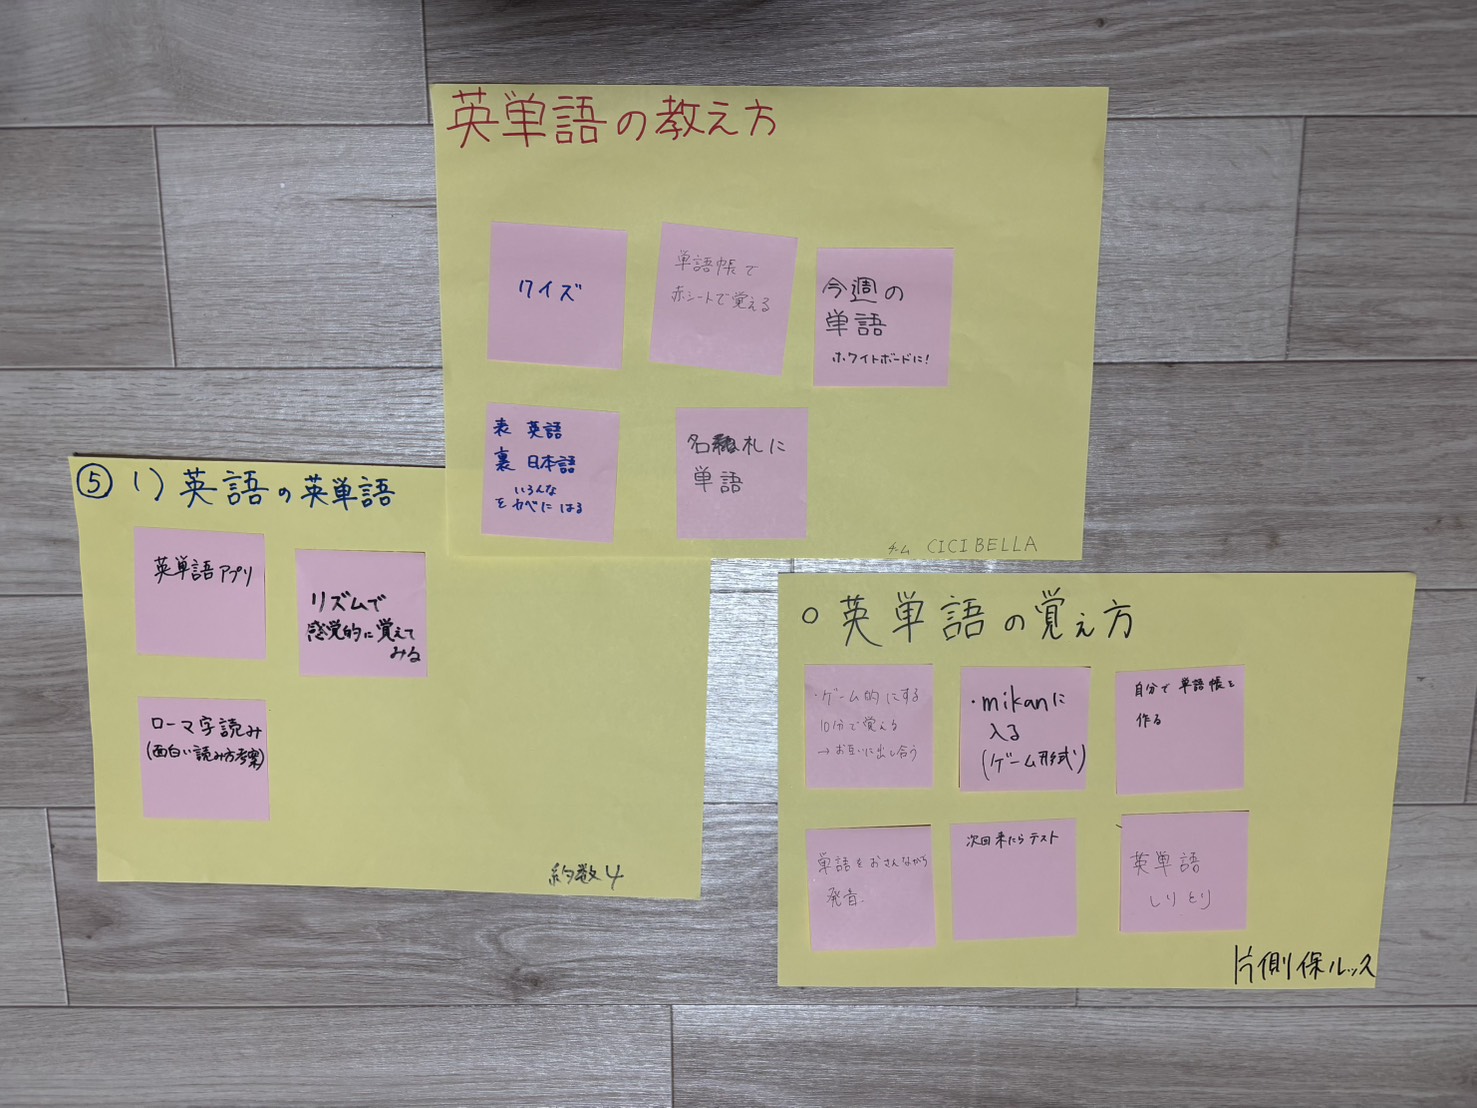 英単語の教え方
クイズ
単語帳で
赤シートで覚える
今週の
単語
ホワイトボードに!
表 英語
裏 日本語
いろんな
をカベにはる
名札に
単語
チーム CICIBELLA
⑤ 1) 英語の英単語
英単語アプリ
リズムで
感覚的に覚えて
みる
ローマ字読み
(面白い読み方考案)
約数4
○英単語の覚え方
・ゲーム的にする
10分で覚える
→お互いに出し合う
・mikanに
入る
(ゲーム形式)
自分で単語帳を
作る
単語をおさんながら
発音.
次回来たらテスト
英単語
しりとり
片側保ルッス